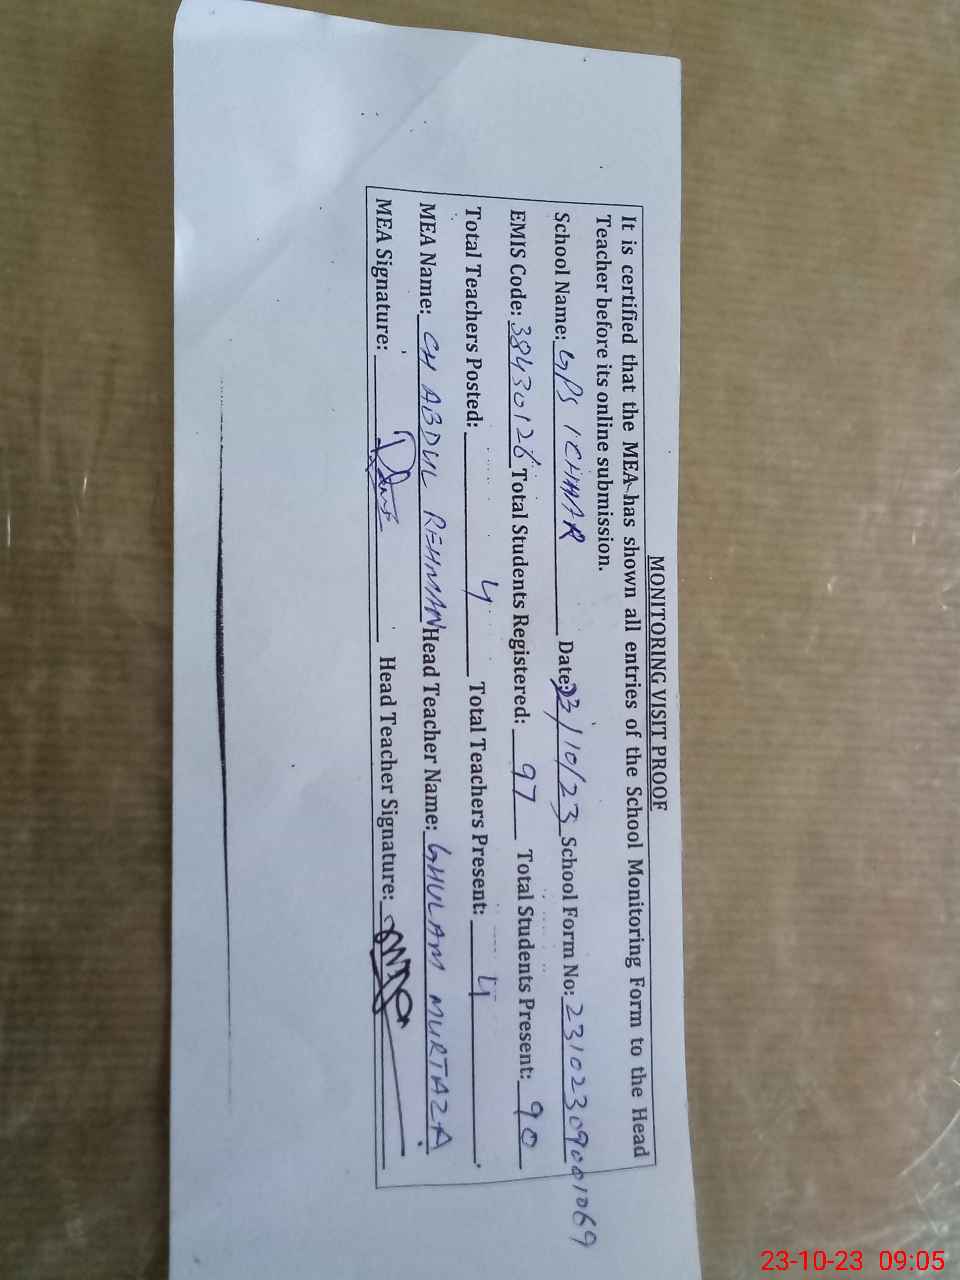 MONITORING VISIT PROOF
It is certified that the MEA has shown all entries of the School Monitoring Form to the Head
Teacher before its online submission.
School Name: GPS 1 CHHAR Date: 23/10/23 School Form No: 2310230900 1069
EMIS Code: 38430126 Total Students Registered: 97 Total Students Present: 90
Total Teachers Posted: 4 Total Teachers Present: 4
MEA Name: CH ABDUL REHMAN Head Teacher Name: GHULAM MURTAZA
MEA Signature: Head Teacher Signature:
23-10-23 09:05